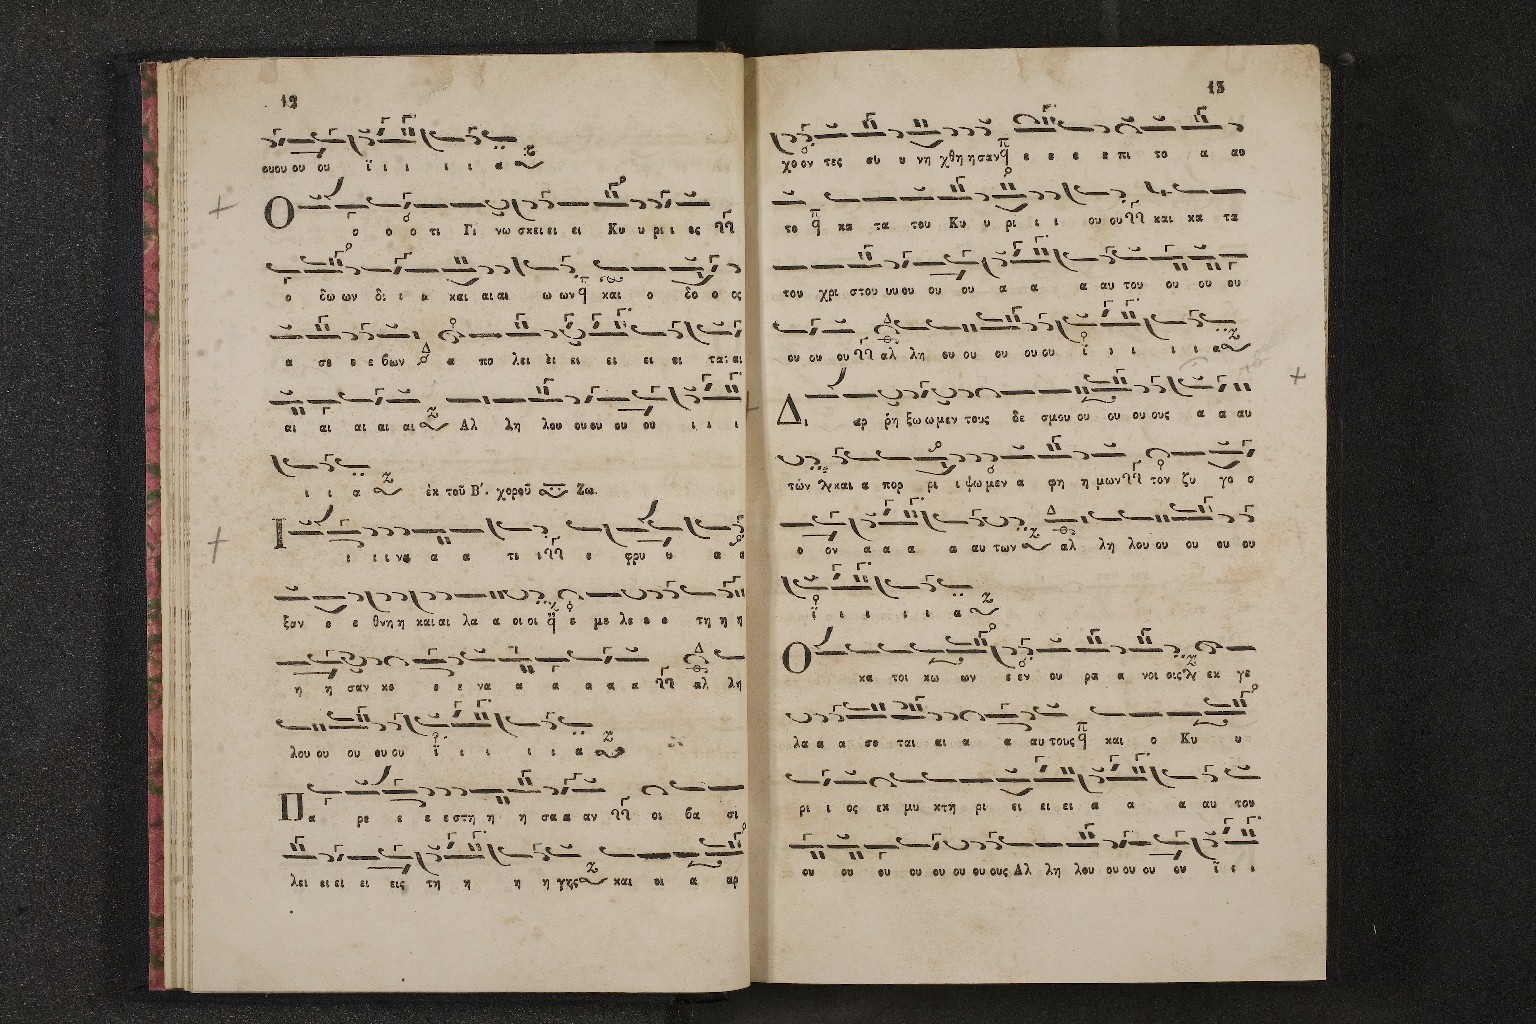 12
ουου ου ου ϊ ι ι ι ι α
Ο ο ο ο τι Γι νω σκει ει ει Κυ υ ρι ι ος
ο δω ων δι ι α και αι αι ω ων και ο δο ο ος
α σε ε ε βων α πο λει ει ει ει ει ει ται αι
αι αι αι αι αι Αλ λη λου ου ου ου ου ι ι ι
ι ι α ἐκ τοῦ Β΄. χοροῦ Ζω.
Ι ι ι ι να α α τι ι ε φρυ υ α α
ξαν ε ε θνη η και αι λα α οι οι ε με λε ε ε τη η η
η η σαν κε ε ε να α α α α α αλ λη
λου ου ου ου ου ϊ ι ι ι ι α
Πα ρε ε ε ε στη η η σα α αν οι βα σι
λει ει ει ει εις τη η η η γης και οι α αρ
13
χο ον τες συ υ νη χθη η σαν ε ε ε ε πι το α αυ
το κα τα του Κυ υ ρι ι ι ου ου και κα τα
του χρι στου υυ ου ου ου α α α αυ του ου ου ου
ου ου ου αλ λη ου ου ου ου ου ϊ ι ι ι ι α
Δι αρ ρη ξω ω μεν τους δε σμου ου ου ου ους α α αυ
τών και α πορ ρι ι ψω μεν α φη η μων τον ζυ γο ο
ο ον α α α α αυ των αλ λη λου ου ου ου ου
ϊ ι ι ι ι α
Ο κα τοι κω ων ε εν ου ρα α νοι οις εκ γε
λα α α σε ται αι α α αυ τους και ο Κυ υ
ρι ι ος εκ μυ κτη ρι ει ει ει α α α αυ του
ου ου ου ου ου ου ου ους Αλ λη λου ου ου ου ου ϊ ι ι